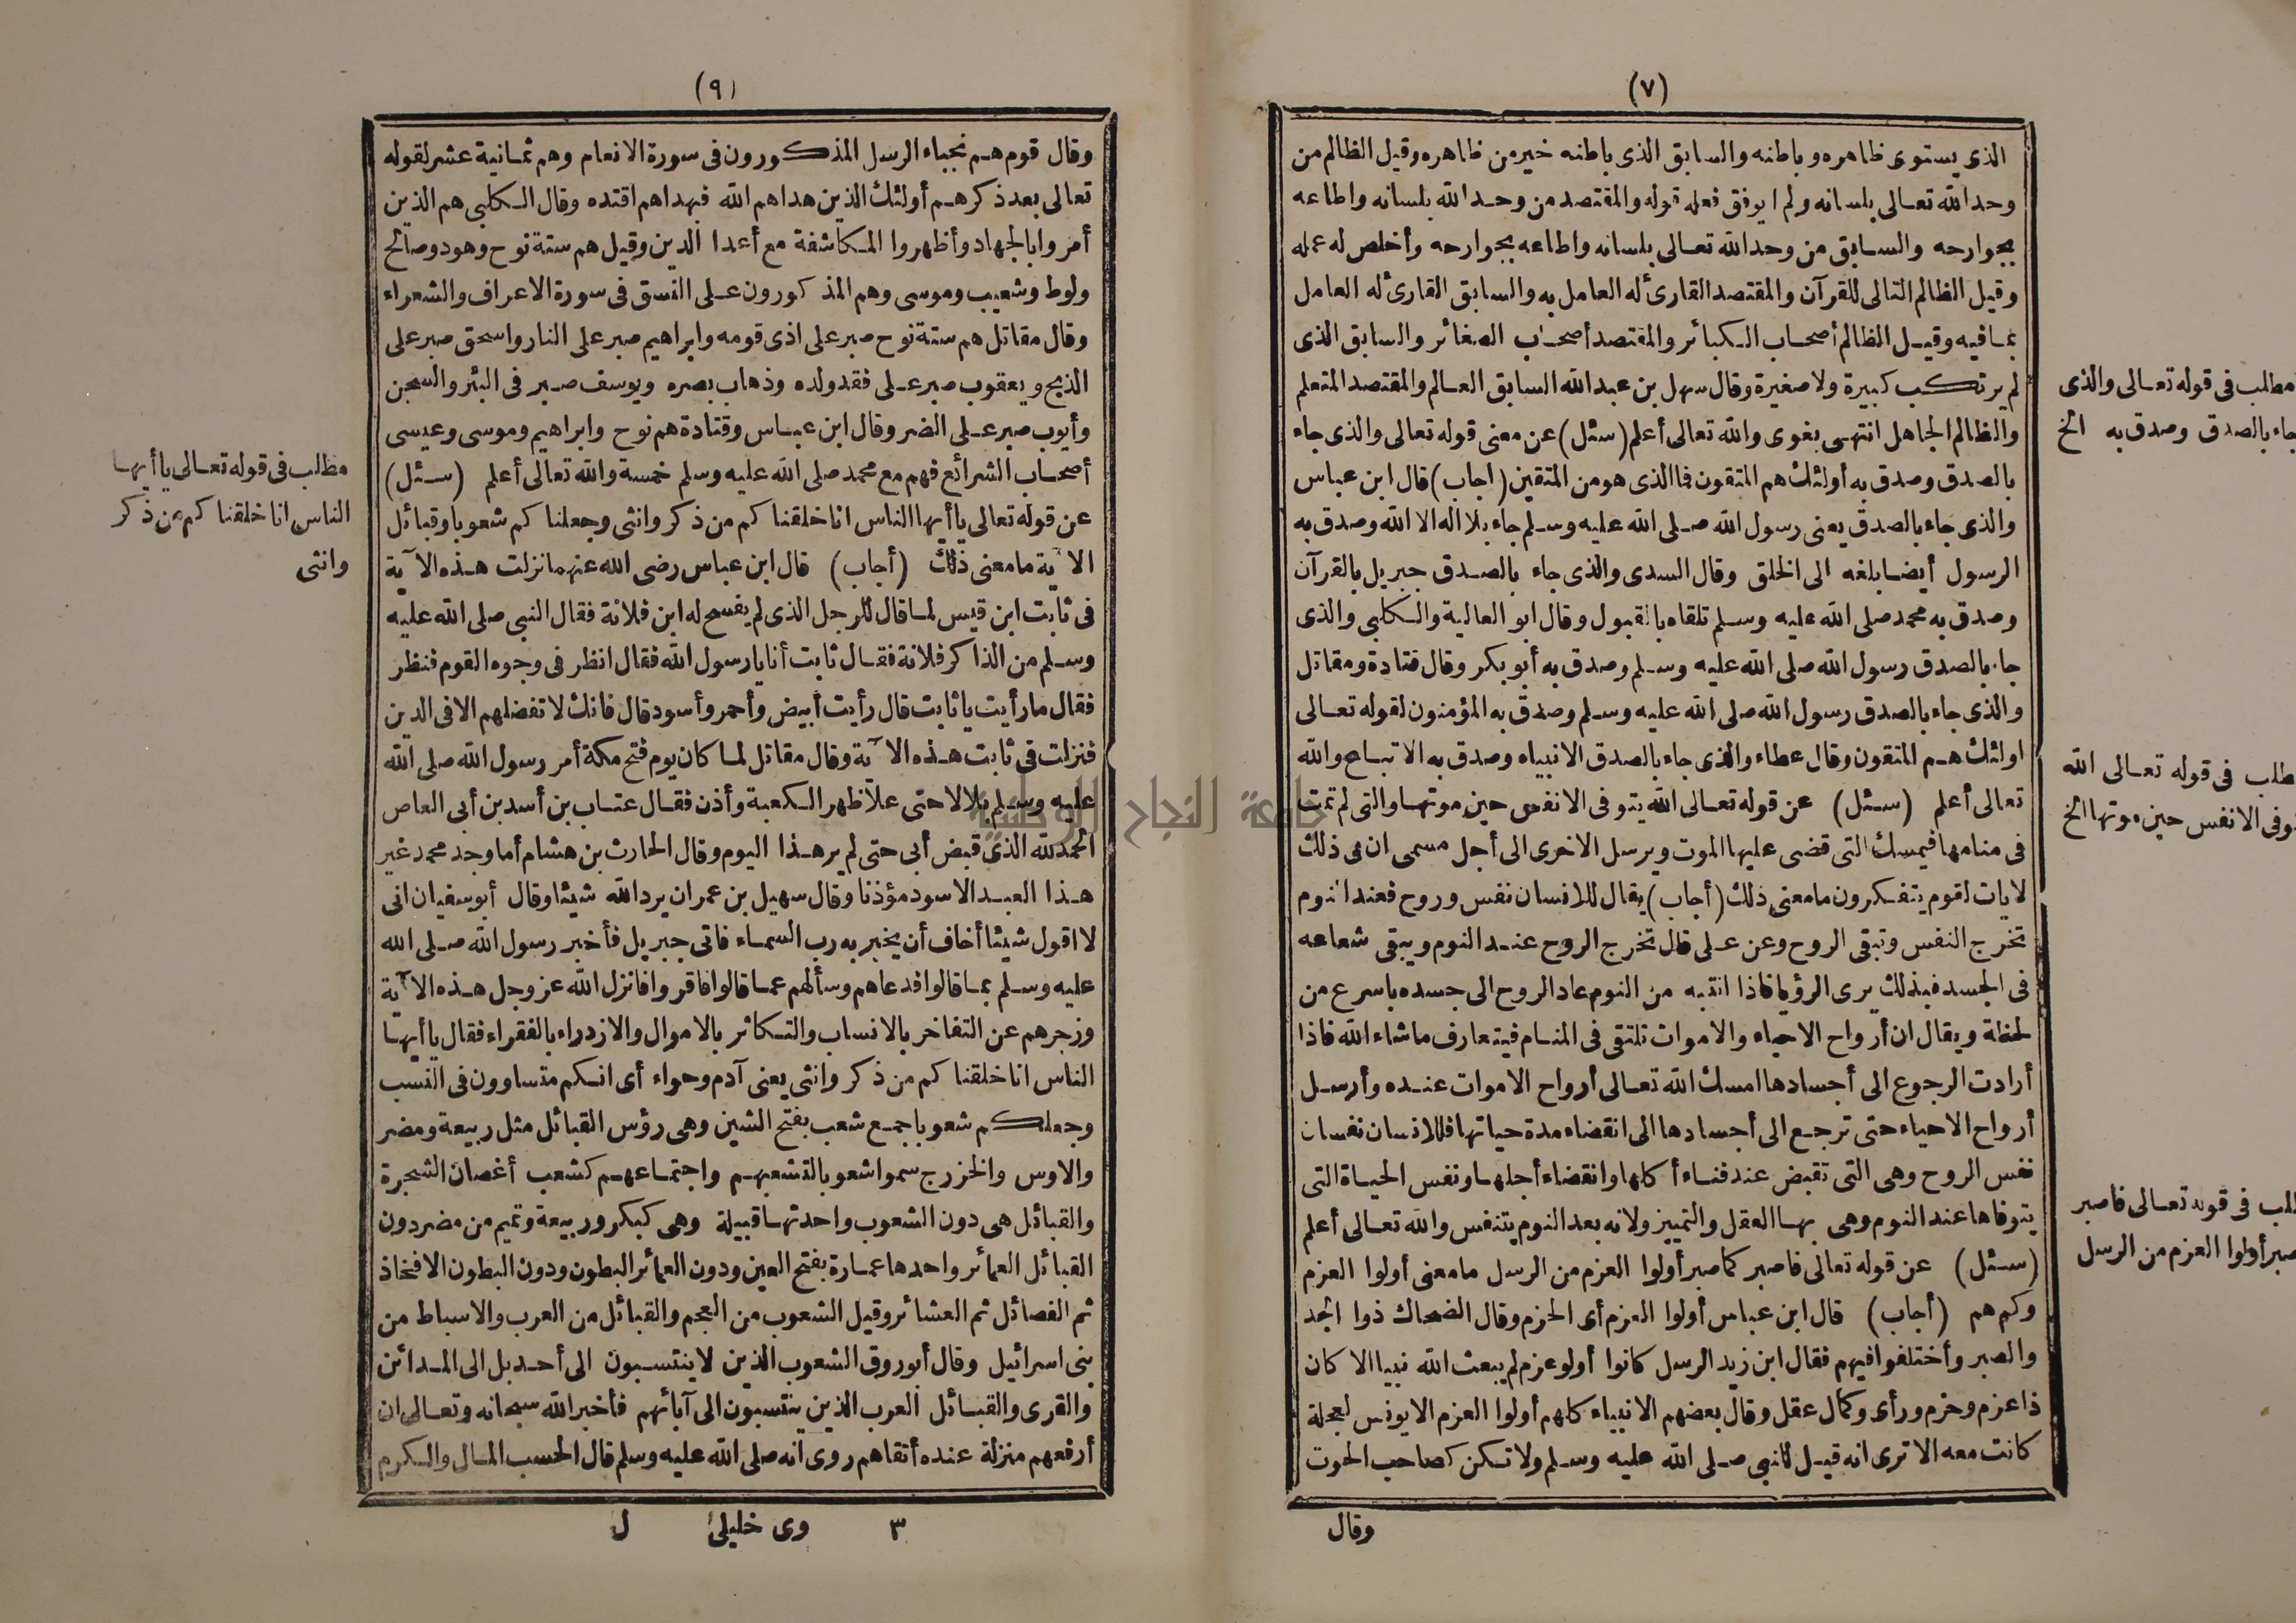 (٧)
الذى يستوى ظاهره وباطنه والسابق الذى باطنه خير من ظاهره وقيل الظالم من
وحد الله تعالى بلسانه ولم يوفق فعله قوله والمقتصد من وحد الله بلسانه واطاعه
بجوارحه والسابق من وحد الله تعالى بلسانه واطاعه بجوارحه وأخلص له عمله
وقيل الظالم التالى للقرآن والمقتصد القارئ له العامل به والسابق القارئ له العامل
بما فيه وقيل الظالم أصحاب الكبائر والمقتصد أصحاب الصغائر والسابق الذى
لم يرتكب كبيرة ولا صغيرة وقال سهل بن عبد الله السابق العالم والمقتصد المتعلم
والظالم الجاهل انتهى بغوى والله تعالى أعلم (سئل) عن معنى قوله تعالى والذى جاء
بالصدق وصدق به أولئك هم المتقون فما الذى هو من المتقين (اجاب) قال ابن عباس
والذى جاء بالصدق يعنى رسول الله صلى الله عليه وسلم جاء بلا اله الا الله وصدق به
الرسول أيضا بلغه الى الخلق وقال السدى والذى جاء بالصدق جبريل بالقرآن
وصدق به محمد صلى الله عليه وسلم تلقاه بالقبول وقال ابو العالية والكلبى والذى
جاء بالصدق رسول الله صلى الله عليه وسلم وصدق به أبو بكر وقال قتادة ومقاتل
والذى جاء بالصدق رسول الله صلى الله عليه وسلم وصدق به المؤمنون لقوله تعالى
اولئك هم المتقون وقال عطاء والذى جاء بالصدق الانبياء وصدق به الاتباع والله
تعالى أعلم (سئل) عن قوله تعالى الله يتوفى الانفس حين موتها والتى لم تمت
فى منامها فيمسك التى قضى عليها الموت ويرسل الاخرى الى أجل مسمى ان فى ذلك
لايات لقوم يتفكرون ما معنى ذلك (أجاب) يقال للانسان نفس وروح فعند النوم
تخرج النفس وتبقى الروح وعن على قال تخرج الروح عند النوم ويبقى شعاعه
فى الجسد فبذلك يرى الرؤيا فاذا انتبه من النوم عاد الروح الى جسده باسرع من
لحظة ويقال ان أرواح الاحياء والاموات تلتقى فى المنام فيتعارف ماشاء الله فاذا
أرادت الرجوع الى أجسادها امسك الله تعالى أرواح الاموات عنده وأرسل
أرواح الاحياء حتى ترجع الى أجسادها الى انقضاء مدة حياتها فللانسان نفسان
نفس الروح وهى التى تقبض عند فناء أكلها وانقضاء أجلها ونفس الحياة التى
يتوفاها عند النوم وهى بها العقل والتمييز ولانه بعد النوم يتنفس والله تعالى أعلم
(سئل) عن قوله تعالى فاصبر كما صبر أولوا العزم من الرسل ما معنى أولوا العزم
وكم هم (أجاب) قال ابن عباس أولوا العزم أى الحزم وقال الضحاك ذوا الجد
والصبر وأختلفوا فيهم فقال ابن زيد الرسل كانوا أولو عزم لم يبعث الله نبيا الا كان
ذا عزم وحزم ورأى وكمال عقل وقال بعضهم الانبياء كلهم أولوا العزم الا يونس لعجلة
كانت معه الا ترى انه قيل للنبى صلى الله عليه وسلم ولا تكن كصاحب الحوت
وقال
مطلب فى قوله تعالى والذى
جاء بالصدق وصدق به الخ
طلب فى قوله تعالى الله
وفى الانفس حين موتها الخ
لب فى قوله تعالى فاصبر
صبر أولوا العزم من الرسل
(٩)
وقال قوم هم نجباء الرسل المذكورون فى سورة الانعام وهم ثمانية عشر لقوله
تعالى بعد ذكرهم أولئك الذين هداهم الله فبهداهم اقتده وقال الكلبى هم الذين
أمروا بالجهاد وأظهروا المكاشفة مع أعدا الدين وقيل هم ستة نوح وهود وصالح
ولوط وشعيب وموسى وهم المذكورون على النسق فى سورة الاعراف والشعراء
وقال مقاتل هم ستة نوح صبر على اذى قومه وابراهيم صبر على النار واسحق صبر على
الذبح ويعقوب صبر على فقد ولده وذهاب بصره ويوسف صبر فى البئر والسجن
وأيوب صبر على الضر وقال ابن عباس وقتادة هم نوح وابراهيم وموسى وعيسى
أصحاب الشرائع فهم مع محمد صلى الله عليه وسلم خمسة والله تعالى أعلم (سئل)
عن قوله تعالى يا أيها الناس انا خلقناكم من ذكر وانثى وجعلناكم شعوبا وقبائل
الآية ما معنى ذلك (أجاب) قال ابن عباس رضى الله عنهما نزلت هذه الآية
فى ثابت ابن قيس لما قال للرجل الذى لم يفسح له ابن فلانة فقال النبى صلى الله عليه
وسلم من الذاكر فلانة فقال ثابت أنا يا رسول الله فقال انظر فى وجوه القوم فنظر
فقال ما رأيت يا ثابت قال رأيت أبيض وأحمر وأسود قال فانك لا تفضلهم الا فى الدين
فنزلت فى ثابت هذه الآية وقال مقاتل لما كان يوم فتح مكة أمر رسول الله صلى الله
عليه وسلم بلالا حتى علا ظهر الكعبة وأذن فقال عتاب بن أسد بن أبى العاص
الحمد لله الذى قبض أبى حتى لم ير هذا اليوم وقال الحارث بن هشام أما وجد محمد غير
هذا العبد الاسود مؤذنا وقال سهيل بن عمر ان يرد الله شيئا وقال أبو سفيان انى
لا اقول شيئا أخاف أن يخبر به رب السماء فاتى جبريل فأخبر رسول الله صلى الله
عليه وسلم بما قالوا فدعاهم وسألهم عما قالوا فاقروا فانزل الله عز وجل هذه الآية
وزجرهم عن التفاخر بالانساب والتكاثر بالاموال والازدراء بالفقراء فقال يا أيها
الناس انا خلقناكم من ذكر وانثى يعنى آدم وحواء أى انكم متساوون فى النسب
وجعلكم شعوبا جمع شعب بفتح الشين وهى رؤس القبائل مثل ربيعة ومضر
والاوس والخزرج سموا شعوبا لتشعبهم واجتماعهم كشعب أغصان الشجرة
والقبائل هى دون الشعوب واحدتها قبيلة وهى كبكر وربيعة وتميم من مضر دون
القبائل العمائر واحدها عمارة بفتح العين ودون العمائر البطون ودون البطون الافخاذ
ثم الفصائل ثم العشائر وقيل الشعوب من العجم والقبائل من العرب والاسباط من
بنى اسرائيل وقال أبو روق الشعوب الذين لا ينتسبون الى أحد بل الى المدائن
والقرى والقبائل العرب الذين ينتسبون الى آبائهم فأخبر الله سبحانه وتعالى ان
أرفعهم منزلة عنده أتقاهم روى انه صلى الله عليه وسلم قال الحسب المال والكرم
٣ وى خليلى ل
مطلب فى قوله تعالى يا أيها
الناس انا خلقناكم من ذكر
وانثى
جامعة النجاح الوطنية